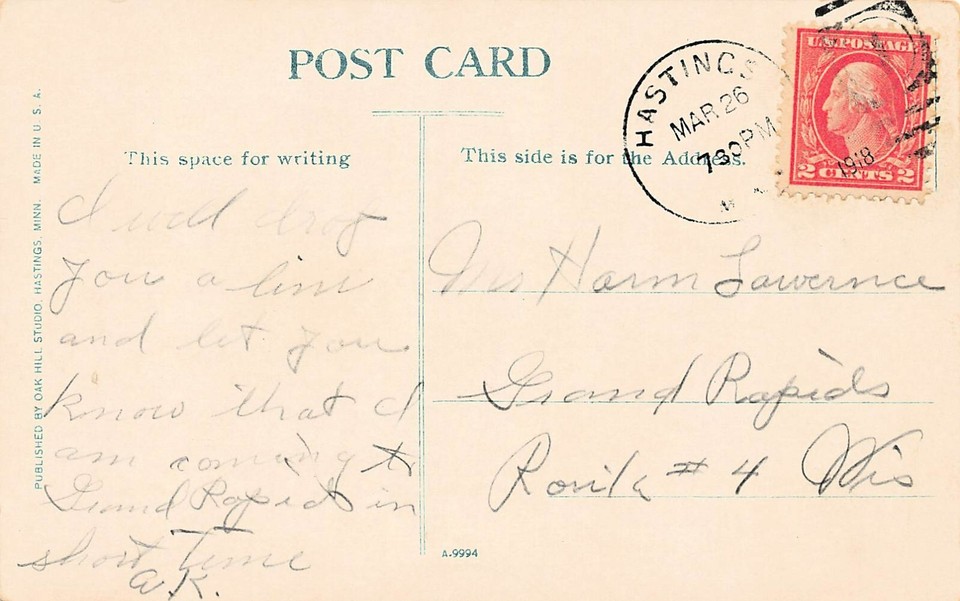 POST CARD
This space for writing
This side is for the Address.
HASTINGS
MAR 26
730PM
1918
M
U.S. POSTAGE
2 CENTS 2
PUBLISHED BY OAK HILL STUDIO, HASTINGS, MINN. MADE IN U. S. A.
I will drop
you a line
and let you
know that I
am coming to
Grand Rapids in
short time
a.K.
Mr Harm Lawernce
Grand Rapids
Route # 4 Wis
A-9994